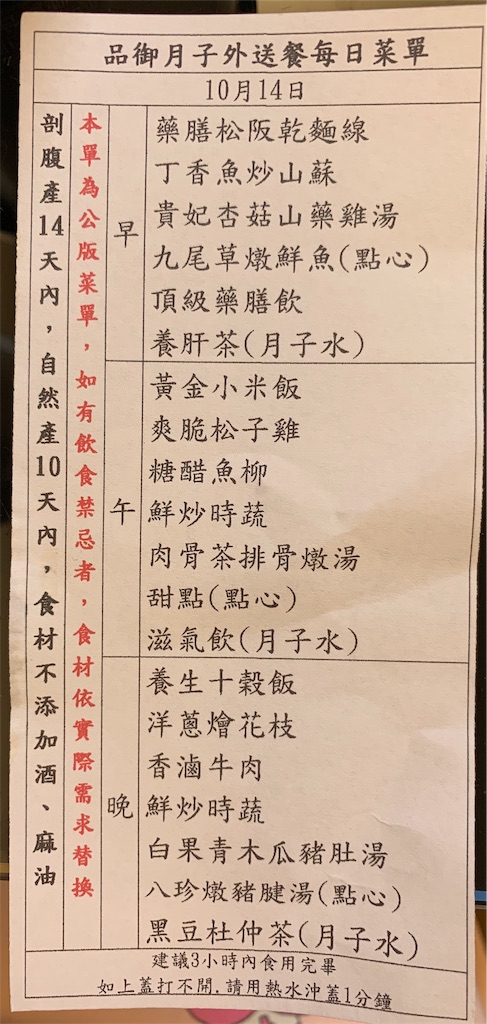 品御月子外送餐每日菜單
10月14日
剖腹產14天內，自然產10天內，食材不添加酒、麻油
本單為公版菜單，如有飲食禁忌者，食材依實際需求替換
早
藥膳松阪乾麵線
丁香魚炒山蘇
貴妃杏菇山藥雞湯
九尾草燉鮮魚(點心)
頂級藥膳飲
養肝茶(月子水)
午
黃金小米飯
爽脆松子雞
糖醋魚柳
鮮炒時蔬
肉骨茶排骨燉湯
甜點(點心)
滋氣飲(月子水)
晚
養生十穀飯
洋蔥燴花枝
香滷牛肉
鮮炒時蔬
白果青木瓜豬肚湯
八珍燉豬腱湯(點心)
黑豆杜仲茶(月子水)
建議3小時內食用完畢
如上蓋打不開.請用熱水沖蓋1分鐘